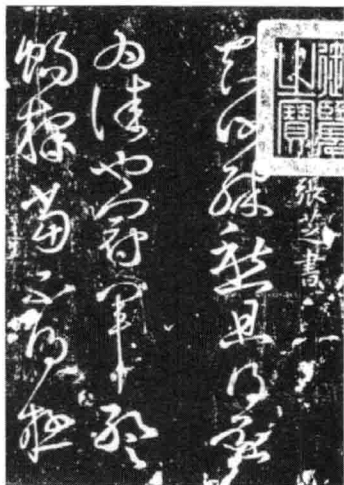 御書之寶
張芝書
知汝殊愁且得還
為佳也冠軍暫
暢釋當不得極